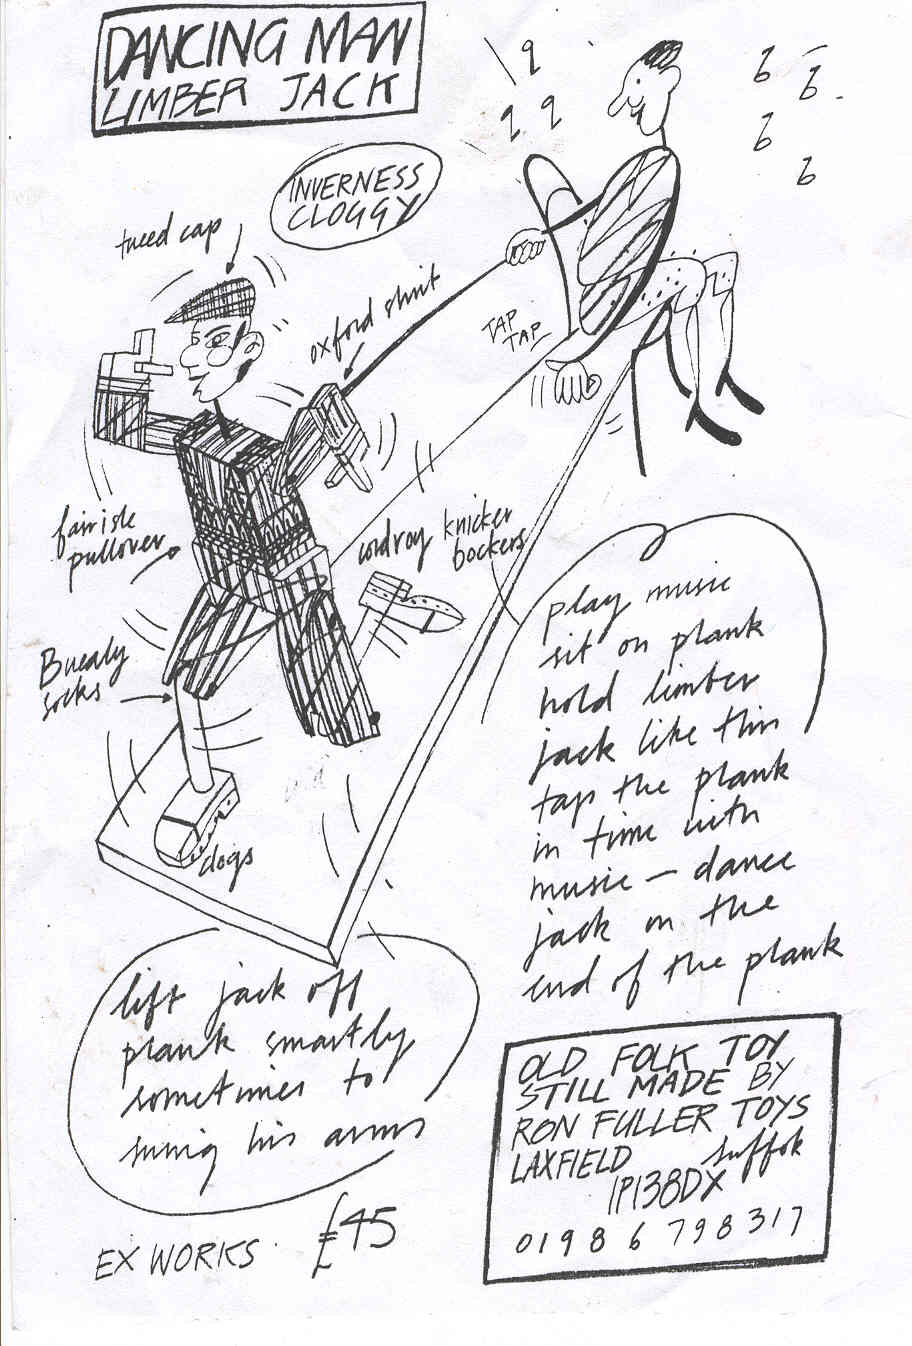 DANCING MAN
LIMBER JACK
INVERNESS
CLOGGY
tweed cap
oxford shirt
TAP
TAP
fairisle
pullover
cordroy knicker
bockers
socks
clogs
play music
sit on plank
hold limber
jack like this
tap the plank
in time with
music – dance
jack on the
end of the plank
lift jack off
plank smartly
sometimes to
swing his arms
OLD FOLK TOY
STILL MADE BY
RON FULLER TOYS
LAXFIELD suffolk
IP138DX
01986 798317
EX WORKS £45